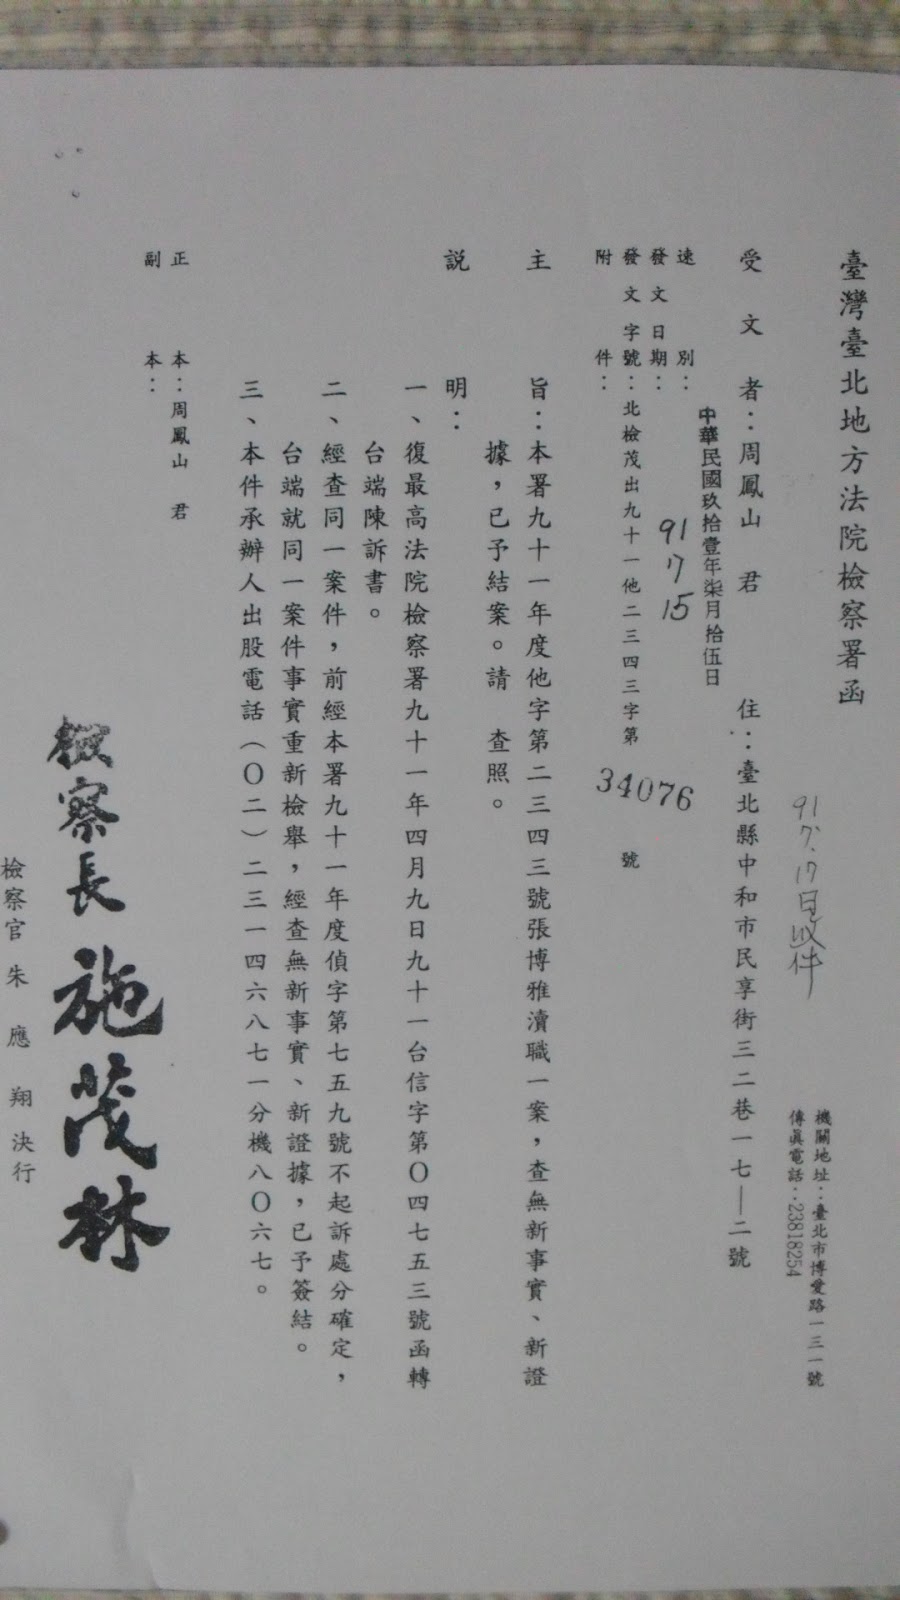 臺灣臺北地方法院檢察署函
機關地址：臺北市博愛路一三一號
傳真電話：23818254
91.7.17日收件
受文者：周鳳山 君 住：臺北縣中和市民享街三二巷一七—二號
中華民國玖拾壹年柒月拾伍日
速別：
發文日期：91 7 15
發文字號：北檢茂出九十一他二三四三字第 34076 號
附件：
主旨：本署九十一年度他字第二三四三號張博雅瀆職一案，查無新事實、新證
據，已予結案。請 查照。
説明：
一、復最高法院檢察署九十一年四月九日九十一台信字第０四七五三號函轉
台端陳訴書。
二、經查同一案件，前經本署九十一年度偵字第七五九號不起訴處分確定，
台端就同一案件事實重新檢舉，經查無新事實、新證據，已予簽結。
三、本件承辦人出股電話（０二）二三一四六八七一分機八０六七。
正本：周鳳山 君
副本：
檢察長 施茂林
檢察官 朱應翔決行